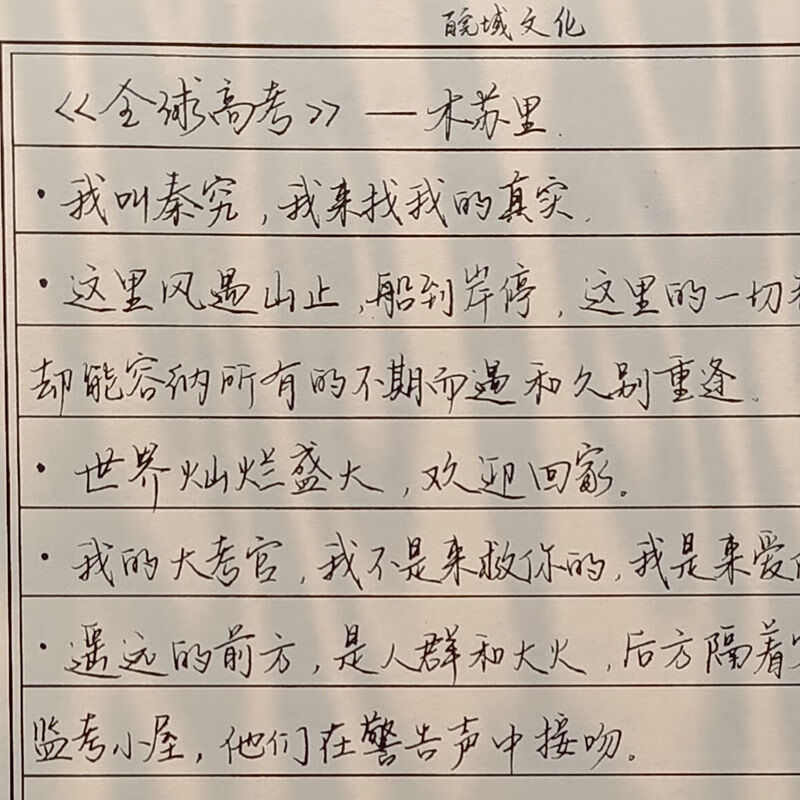 皖域文化
《全球高考》—木苏里.
·我叫秦究,我来找我的真实.
·这里风遇山止,船到岸停,这里的一切
却能容纳所有的不期而遇和久别重逢.
·世界灿烂盛大,欢迎回家。
·我的大考官,我不是来救你的,我是来爱
·遥远的前方,是人群和大火,后方隔着
监考小屋,他们在警告声中接吻。